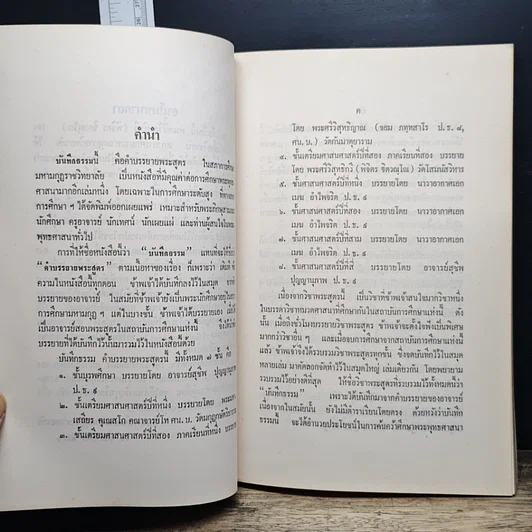 คำนำ
บันทึกธรรมนี้ คือคำบรรยายพระสูตร ในสภาการศึกษา
มหามกุฏราชวิทยาลัย เป็นหนังสือที่มีคุณค่าต่อการศึกษาพระพุทธ
ศาสนามากอีกเล่มหนึ่ง โดยเฉพาะในการศึกษาระดับสูง ที่ทางสภา
การศึกษา ฯ ได้จัดพิมพ์ออกเผยแพร่ เหมาะสำหรับพระภิกษุสามเณร
นักศึกษา ครูอาจารย์ นักเทศน์ นักเผยแผ่ และท่านผู้สนใจใน
พุทธศาสนาทั่วไป
การที่ให้ชื่อหนังสือนี้ว่า "บันทึกธรรม" แทนที่จะใช้
"คำบรรยายพระสูตร" ตามเนื้อหาของเรื่อง ก็เพราะว่า เดิมที
ความในหนังสือนี้ทุกตอน ข้าพเจ้าได้บันทึกลงไว้ในสมุด จากคำ
บรรยายของอาจารย์ ในสมัยที่ข้าพเจ้ายังเป็นพระนักศึกษาอยู่ใน
การศึกษามหามกุฏ ฯ แต่ในบางชั้น ข้าพเจ้าได้บรรยายเอง
เป็นอาจารย์สอนพระสูตรในสถาบันการศึกษาแห่งนี้ จึงได้
บรรยายที่ได้บันทึกไว้ทั้งหมดมารวมไว้ในหนังสือนี้ด้วย
บันทึกธรรม คำบรรยายพระสูตรนี้ มีทั้งหมด ๗ ชั้น คือ
๑. ชั้นบุรพศึกษา บรรยายโดย อาจารย์สุชีพ ปุญญานุภาพ
ป. ธ. ๙
๒. ชั้นเตรียมศาสนศาสตร์ปีที่หนึ่ง บรรยายโดย
เสถียร คุณาจารย์โท ศน. บ. วัดมกุฏกษัตริยาราม
๓. ชั้นเตรียมศาสนศาสตร์ปีที่สอง ภาคเรียนที่หนึ่ง บรรยาย
ค
โดย พระศรีวิสุทธิญาณ (จอม ภทฺทสาโร ป. ธ. ๘,
ศน. บ.) วัดกันมาตุยาราม
๔. ชั้นเตรียมศาสนศาสตร์ปีที่สอง ภาคเรียนที่สอง บรรยาย
โดย พระศรีวิสุทธิกวี (พิจิตร ฐิตวณฺโณ) วัดโสมนัสวิหาร
๕. ชั้นศาสนศาสตร์ปีที่หนึ่ง บรรยายโดย นาวาอากาศเอก
เมฆ อำไพจริต ป. ธ. ๙
๖. ชั้นศาสนศาสตร์ปีที่สอง บรรยายโดย นาวาอากาศเอก
เมฆ อำไพจริต ป. ธ. ๙
๗. ชั้นศาสนศาสตร์ปีที่สาม บรรยายโดย นาวาอากาศเอก
เมฆ อำไพจริต ป. ธ. ๙
๘. ชั้นศาสนศาสตร์ปีที่สี่ บรรยายโดย อาจารย์สุชีพ
ปุญญานุภาพ ป. ธ. ๙
เนื่องจากวิชาพระสูตรนี้ เป็นวิชาที่ข้าพเจ้าสนใจมากวิชาหนึ่ง
ในบรรดาวิชาทั้งหมดตามที่ศึกษากันในสถาบันการศึกษาแห่งนี้ ดัง
นั้น เมื่อถึงชั่วโมงบรรยายวิชาพระสูตร ข้าพเจ้าจะตั้งใจฟังเป็นพิเศษ
มากกว่าวิชาอื่น ๆ และเมื่อจบการศึกษาจากสถาบันการศึกษาแห่งนี้
แล้ว ข้าพเจ้าจึงได้รวบรวมวิชาพระสูตรทุกชั้น ซึ่งจดบันทึกไว้ในสมุด
หลายเล่ม มาคัดลอกจัดทำไว้ในสมุดใหญ่ เล่มเดียวกัน โดยพยายาม
รวบรวมไว้อย่างดีที่สุด ให้ชื่อวิชาพระสูตรที่รวบรวมได้ทั้งหมดนั้นว่า
"บันทึกธรรม" เพราะได้บันทึกมาจากคำบรรยายของอาจารย์
เนื่องจากในสมัยนั้น ยังไม่มีตำราเรียนโดยตรง ด้วยหวังว่าบันทึก
ธรรมนี้ จะได้อำนวยประโยชน์ในการค้นคว้าศึกษาพระพุทธศาสนา